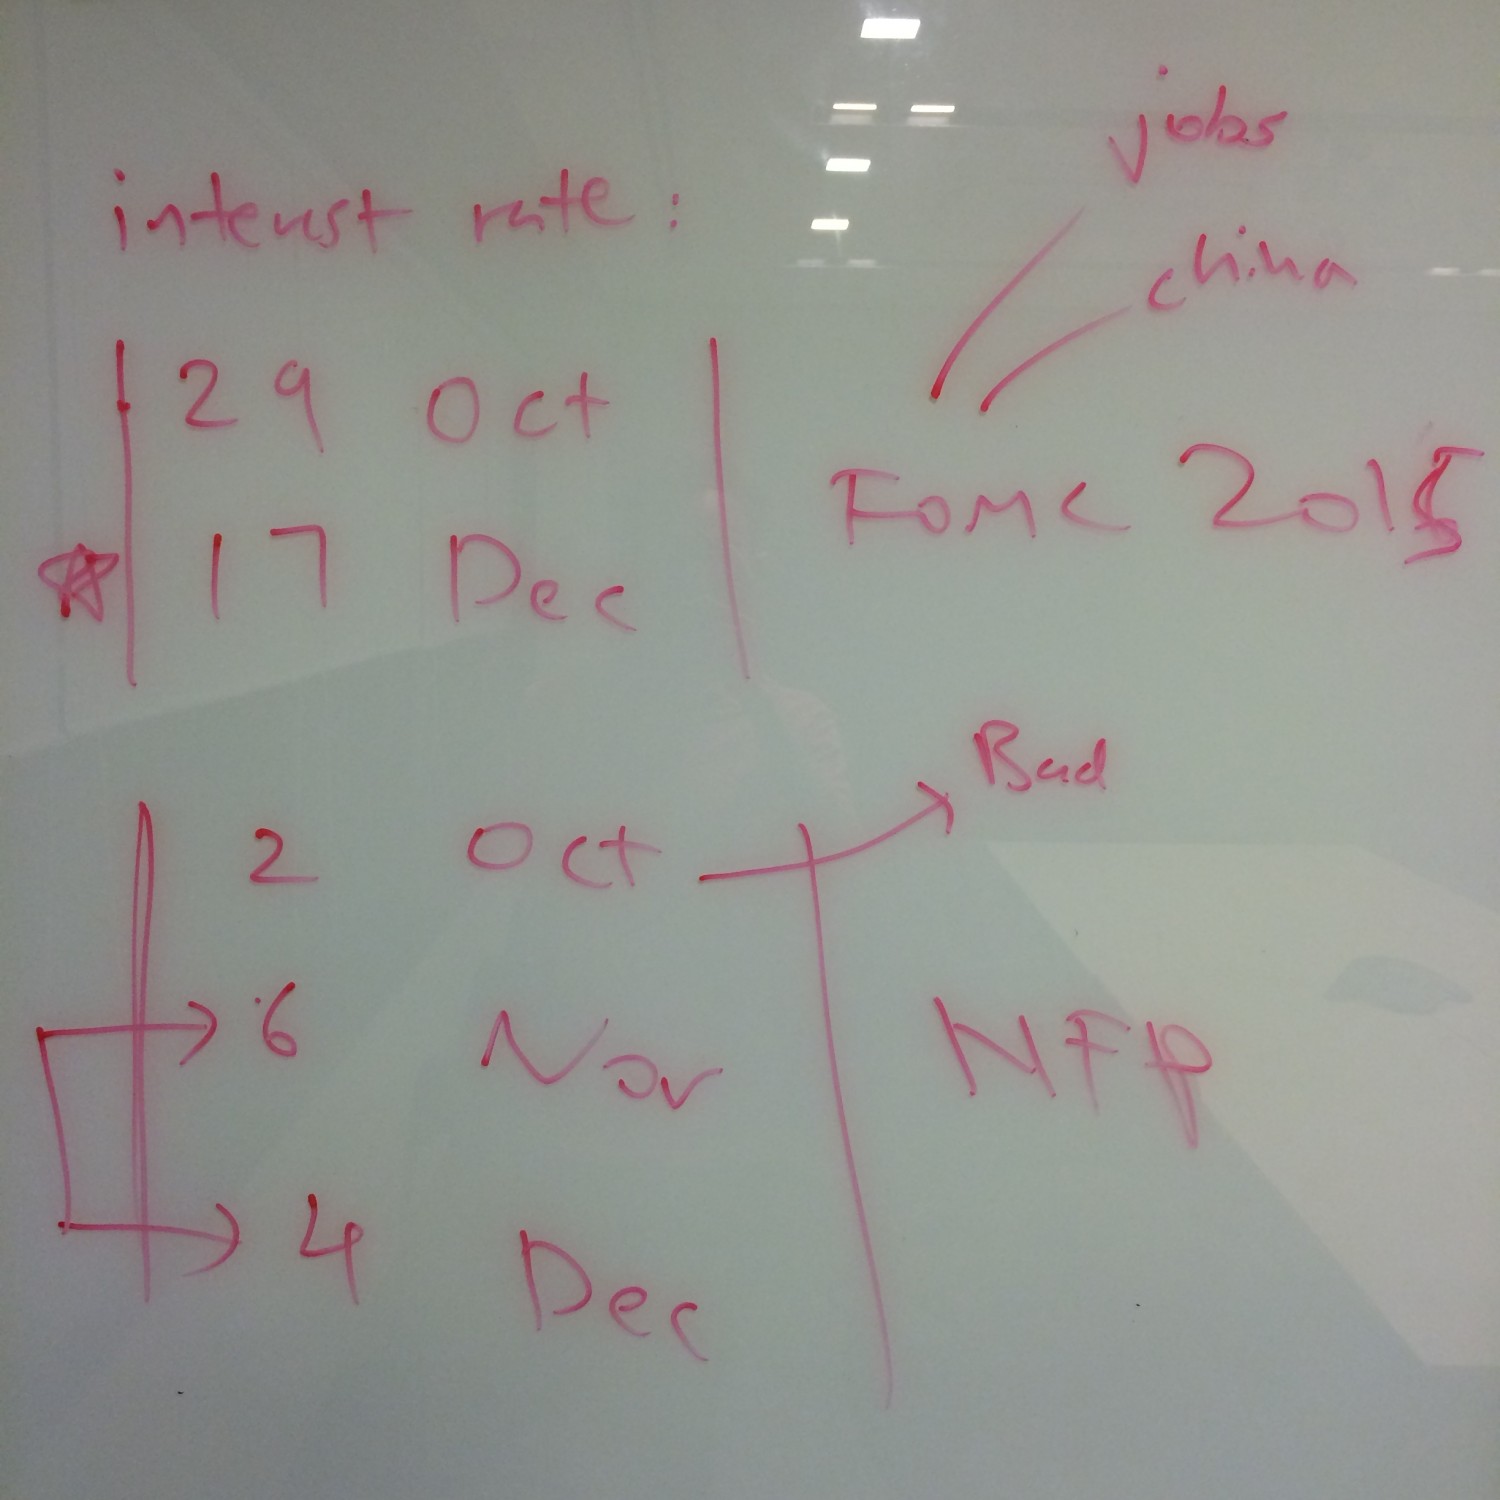 jobs
china
interest rate :
29 Oct
17 Dec
FOMC 2015
Bad
2 Oct
6 Nov
NFP
4 Dec